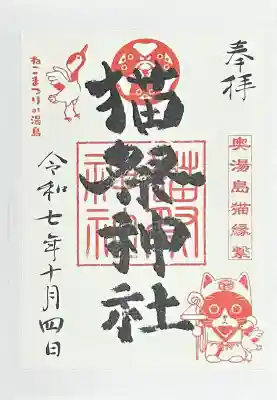 奉拝
奥湯島猫縁繋
猫祭神社
ねこまつりin湯島
令和七年十月四日